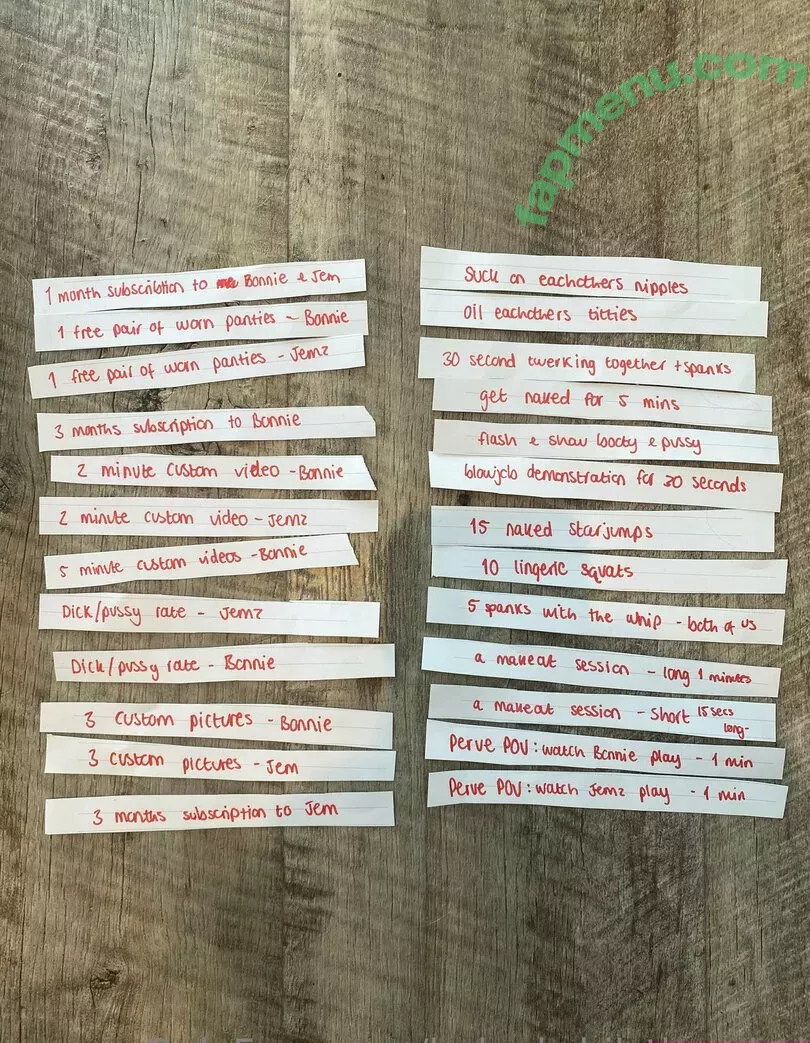 fapmenu.com
1 month subscribtion to Bonnie & Jem
1 free pair of worn panties - Bonnie
1 free pair of worn panties - Jemz
3 months subscription to Bonnie
2 minute custom video - Bonnie
2 minute custom video - Jemz
5 minute custom videos - Bonnie
Dick/pussy rate - Jemz
Dick/pussy rate - Bonnie
3 custom pictures - Bonnie
3 custom pictures - Jem
3 months subscription to Jem
Suck on eachothers nipples
oil eachothers titties
30 second twerking together + spanks
get naked for 5 mins
flash & show booty & pussy
blowjob demonstration for 30 seconds
15 naked starjumps
10 lingerie squats
5 spanks with the whip - both of us
a makeout session - long 1 minutes
a makeout session - short 15 secs
long-
Perve POV: watch Bonnie play - 1 min
Perve POV: watch Jemz play - 1 min